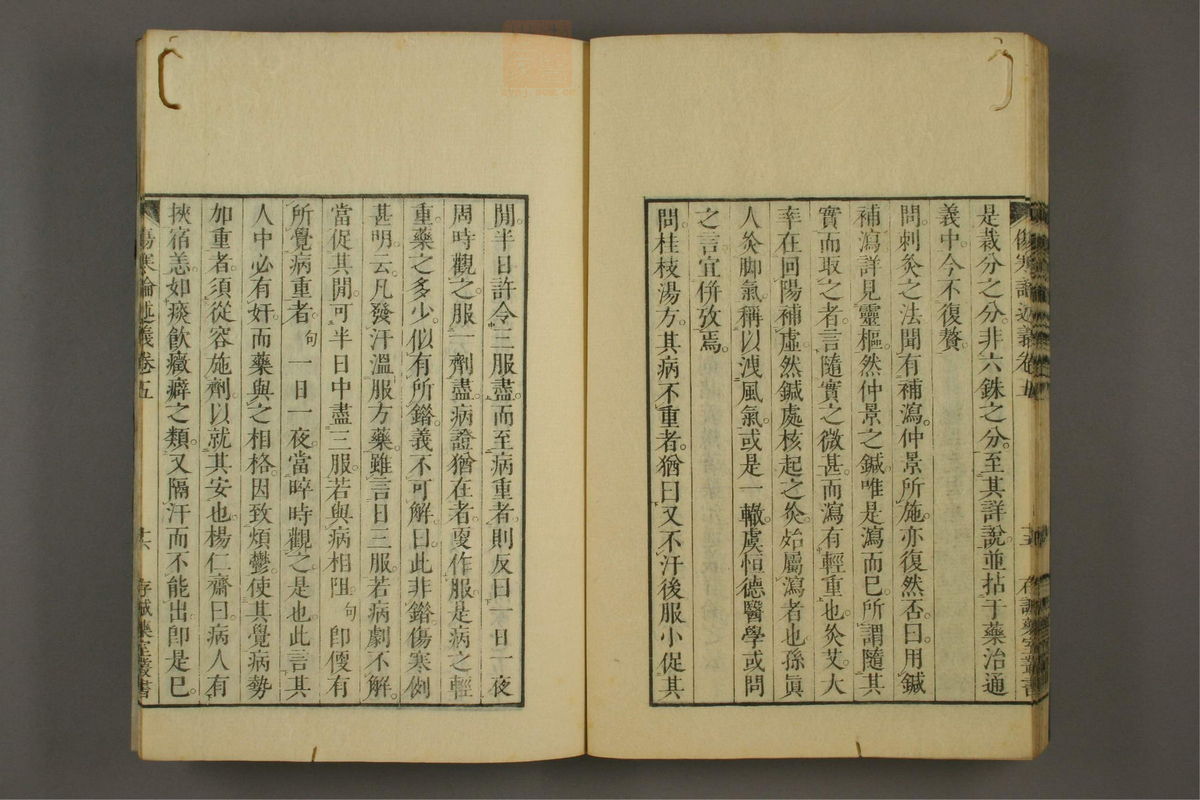 傷寒論述義卷五
十五
存誠藥室叢書
是裁分之分。非六銖之分。至其詳說。並拈于藥治通
義中。今不復贅。
問。刺灸之法。聞有補瀉。仲景所施。亦復然否。曰。用鍼
補瀉。詳見靈樞。然仲景之鍼。唯是瀉而已。所謂隨其
實而取之者。言隨實之微甚。而瀉有輕重也。灸艾。大
率在回陽補虛。然鍼處核起之灸。始屬瀉者也。孫眞
人灸脚氣。稱以洩風氣。或是一轍。虞恒德醫學或問
之言。宜併攷焉。
問。桂枝湯方。其病不重者。猶曰又不汗。後服小促其
閒。半日許。令三服盡。而至病重者。則反曰一日一夜
周時觀之。服一劑盡。病證猶在者。更作服。是病之輕
重。藥之多少。似有所錯。義不可解。曰。此非錯。傷寒例
甚明。云。凡發汗溫服方藥。雖言日三服。若病劇不解。
當促其閒。可半日中盡三服。若與病相阻。句 卽便有
所覺病重者。句 一日一夜。當晬時觀之。是也。此言其
人中必有奸。而藥與之相格。因致煩鬱。使其覺病勢
如重者。須從容施劑。以就其安也。楊仁齋曰。病人有
挾宿恙。如痰飮癥癖之類。又隔汗而不能出。卽是已。
傷寒論述義卷五
十六
存誠藥室叢書